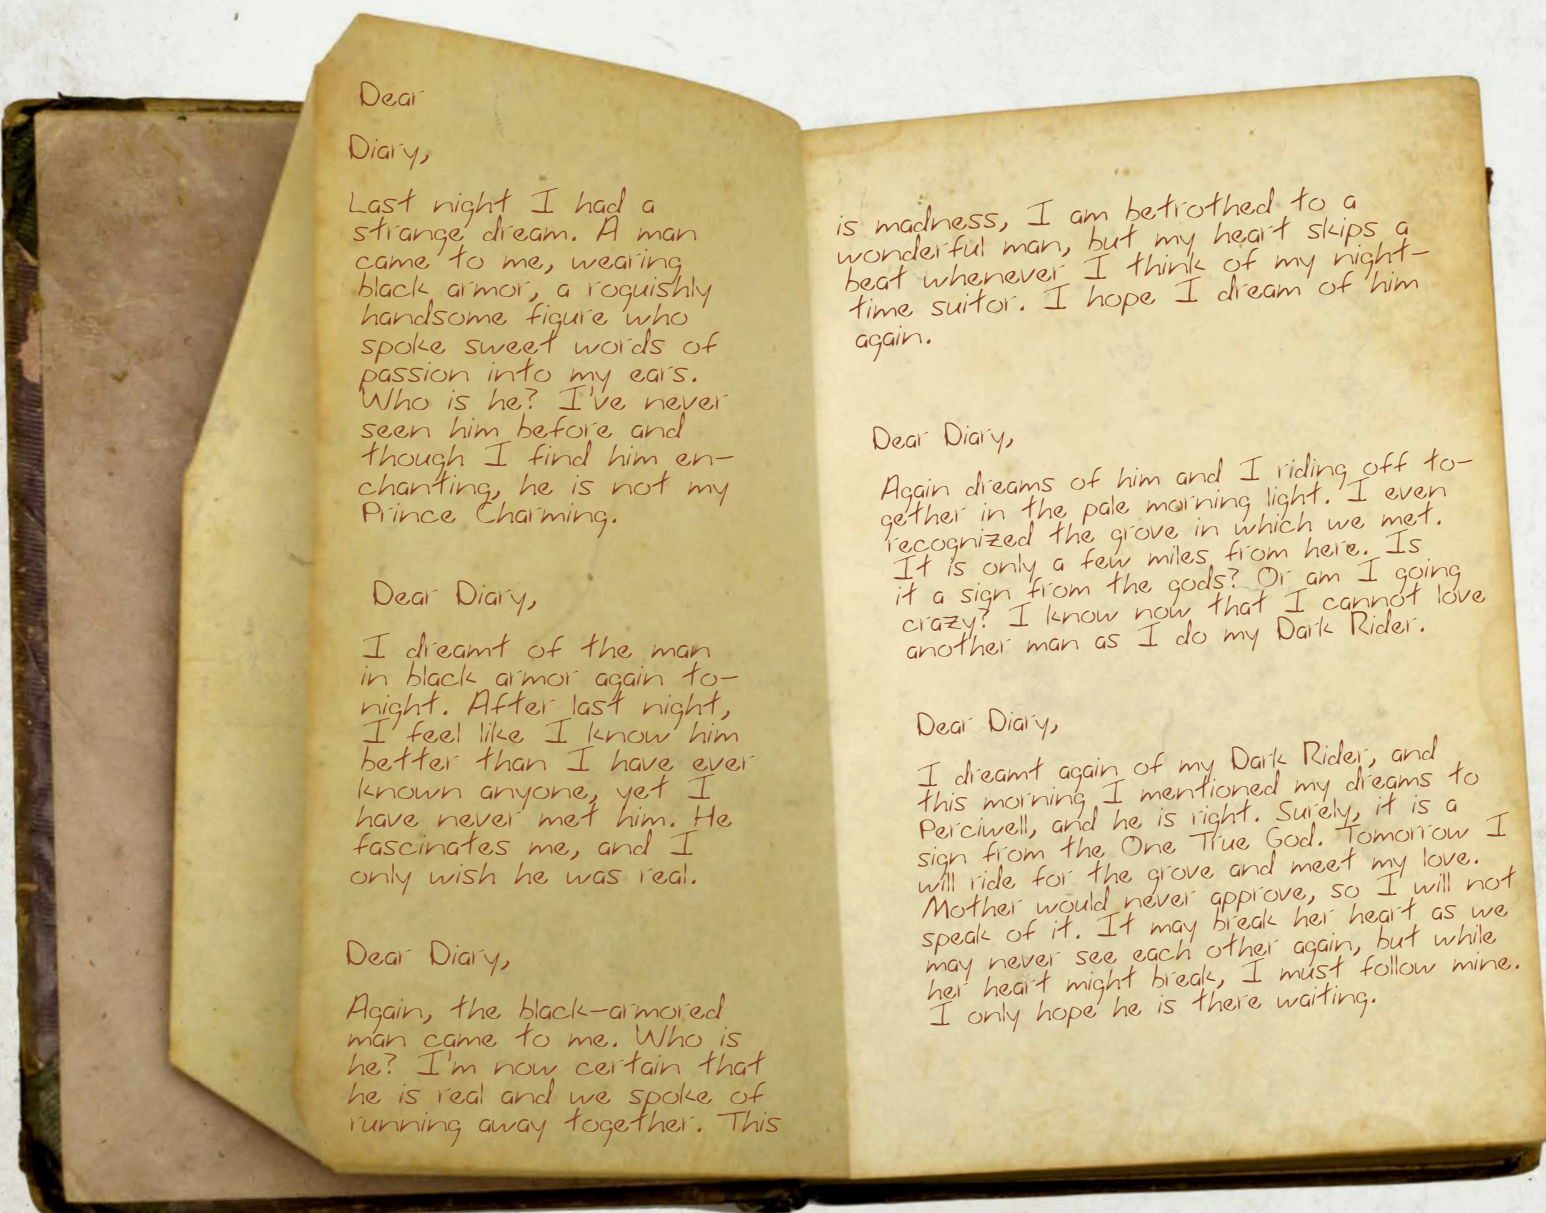 Dear
Diary,
Last night I had a
strange dream. A man
came to me, wearing
black armor, a roguishly
handsome figure who
spoke sweet words of
passion into my ears.
Who is he? I've never
seen him before and
though I find him en-
chanting, he is not my
Prince Charming.
Dear Diary,
I dreamt of the man
in black armor again to-
night. After last night,
I feel like I know him
better than I have ever
known anyone, yet I
have never met him. He
fascinates me, and I
only wish he was real.
Dear Diary,
Again, the black-armored
man came to me. Who is
he? I'm now certain that
he is real and we spoke of
running away together. This
is madness, I am betrothed to a
wonderful man, but my heart skips a
beat whenever I think of my night-
time suitor. I hope I dream of him
again.
Dear Diary,
Again dreams of him and I riding off to-
gether in the pale morning light. I even
recognized the grove in which we met.
It is only a few miles from here. Is
it a sign from the gods? Or am I going
crazy? I know now that I cannot love
another man as I do my Dark Rider.
Dear Diary,
I dreamt again of my Dark Rider, and
this morning I mentioned my dreams to
Perciwell, and he is right. Surely, it is a
sign from the One True God. Tomorrow I
will ride for the grove and meet my love.
Mother would never approve, so I will not
speak of it. It may break her heart as we
may never see each other again, but while
her heart might break, I must follow mine.
I only hope he is there waiting.